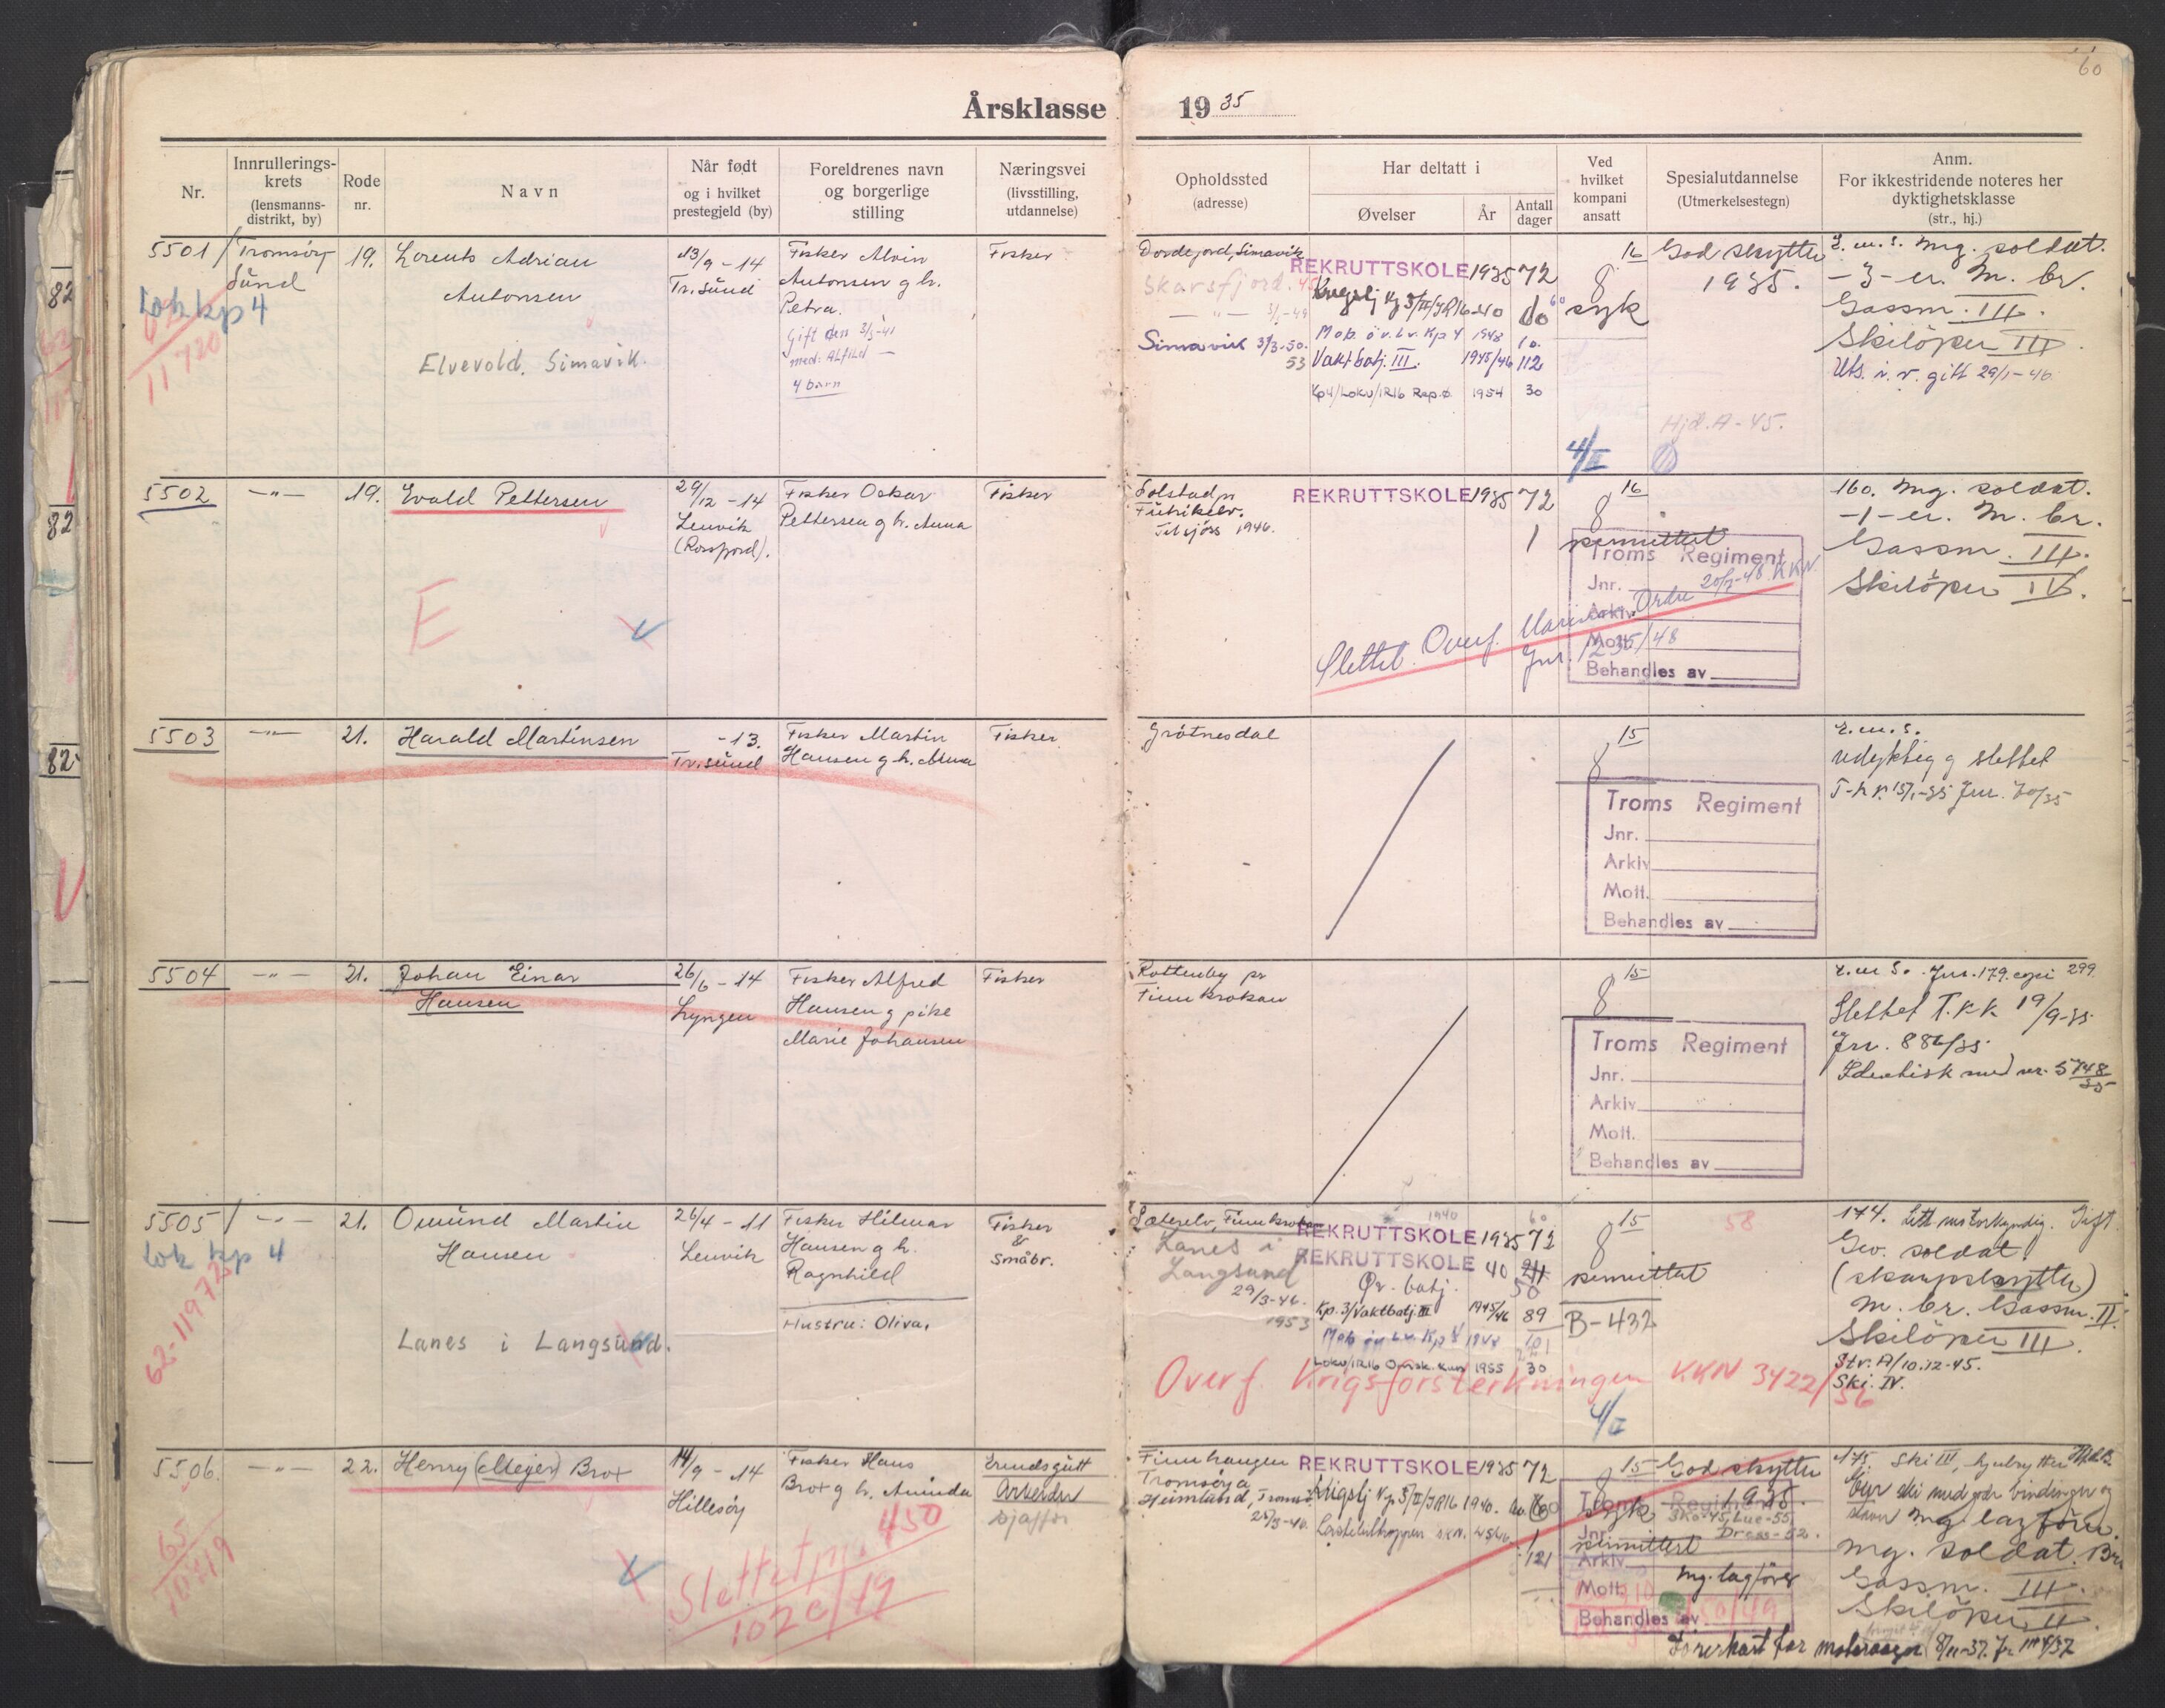 60
Årsklasse 1935
Nr.
Innrullerings-
krets
(lensmanns-
distrikt, by)
Rode
nr.
Navn
Når født
og i hvilket
prestegjeld (by)
Foreldrenes navn
og borgerlige
stilling
Næringsvei
(livsstilling,
utdannelse)
Opholdssted
(adresse)
Har deltatt i
Øvelser
År
Antall
dager
Ved
hvilket
kompani
ansatt
Spesialutdannelse
(Utmerkelsestegn)
Anm.
For ikkestridende noteres her
dyktighetsklasse
(str., hj.)
5501
Tromsøy-
sund
Lok kp 4
11720
19.
Lorents Adrian
Antonsen
Elvevold. Simavik.
13/9-14
Tr.sund
Fisker Alvin
Antonsen g h.
Petra.
Gift den 3/5-41
med: Alfild
4 barn
Fisker
Simavik
Skarsfjord. 45
Simavik 3/3-50.
53
REKRUTTSKOLE 1935 72
Mob. öv. Lv. Kp 4 1948 10.
Vaktbatj. III. 1945/46 112
Kp4/Lokv/IR16 Rep.ø. 1954 30
16
8
syk
4/II
God skytter
1935.
Hjd. A-45.
L.m.s. Mg. soldat.
-3-er. M. br.
Gassm. III.
Skilöper III.
Uts. i. v. gitt 29/1-46
5502
-"-
19.
Evald Pettersen
E
29/12-14
Lenvik
(Rossfjord).
Fisker Oskar
Pettersen g h. Anna
Fisker
Solstad pr
Til sjøss 1946.
REKRUTTSKOLE 1935 72
1
16
8
permittert
Troms Regiment
Jnr.
Arkiv
Mott.
Behandles av
Slettet. Overf. Marinen Ordre 20/7-48 KKN
Jnr. 1235/48
160. Mg. soldat.
-1-er. M. br.
Gassm. III.
Skilöper IV.
5503
-"-
21.
Harald Martinsen
-13.
Tr.sund
Fisker Martin
Hansen g h. Anna
Fisker
Grötnesdal
15
8
Troms Regiment
Jnr.
Arkiv
Mott.
Behandles av
L.m.s.
udyktig g slettet
5504
-"-
21.
Johan Einar
Hansen
26/6-14
Lyngen
Fisker Alfred
Hansen g pike
Marie Johansen
Fisker
Rottenby pr
Finnkroken
15
8
Troms Regiment
Jnr.
Arkiv
Mott.
Behandles av
L.m.s. Jnr. 179. kopi 299
Slettet T.K.K. 19/9-35
Jnr. 886/35
Identisk med nr. 5748/35
5505
-"-
Lok kp 4
62-11972
21.
Omünd Martin
Hansen
Lanes i Langsund.
26/4-11
Lenvik
Fisker Hilmar
Hansen g h.
Ragnhild
Hustru: Oliva.
Fisker
&
Småbr.
Sæterelv, Finnkroken
Lanes i
Langsund
29/3-46.
1953
1940 60
REKRUTTSKOLE 1935 72
REKRUTTSKOLE 40
50
Kp. 3/Vaktbatj. III 1945/46 89
Mob öv. Lv. Kp 4 1948
Lokv/IR16 Omsk. kurs 1955 30
15
8
permittert
B-432
4/II
58
Overf. Krigsforsterkningen KKN 3422/56
174. Litt motorkyndig. Gift.
Gev. soldat.
(skarpskytter)
M. br. Gassm. II.
Skilöper III.
Str: A/10.12-45.
Ski. IV.
5506.
-"-
22.
Henry (Meyer) Brox
14/9-14
Hillesöy
Fisker Hans
Brox g h. Aminda
Erendsgutt
Arbeider
Sjåfør
Slettet pr. 450
102c/49
Finnhaugen
Tromsöya
Heimland, Tromsö.
REKRUTTSKOLE 1935 72
1
121
15
8
syk
permittert
God skytter
1935.
Sko-45, Lue-55
Dress-52.
mg. lagfører
Troms Regiment
Jnr.
Arkiv
Mott.
Behandles av
450/49
175. Ski III, hjulrytter
Eier ski med gode bindinger og
staver mg. lagförer.
Mg. soldat.
Gassm. III.
Skilöper II.
Förerkort for motorvogn 8/11-37.